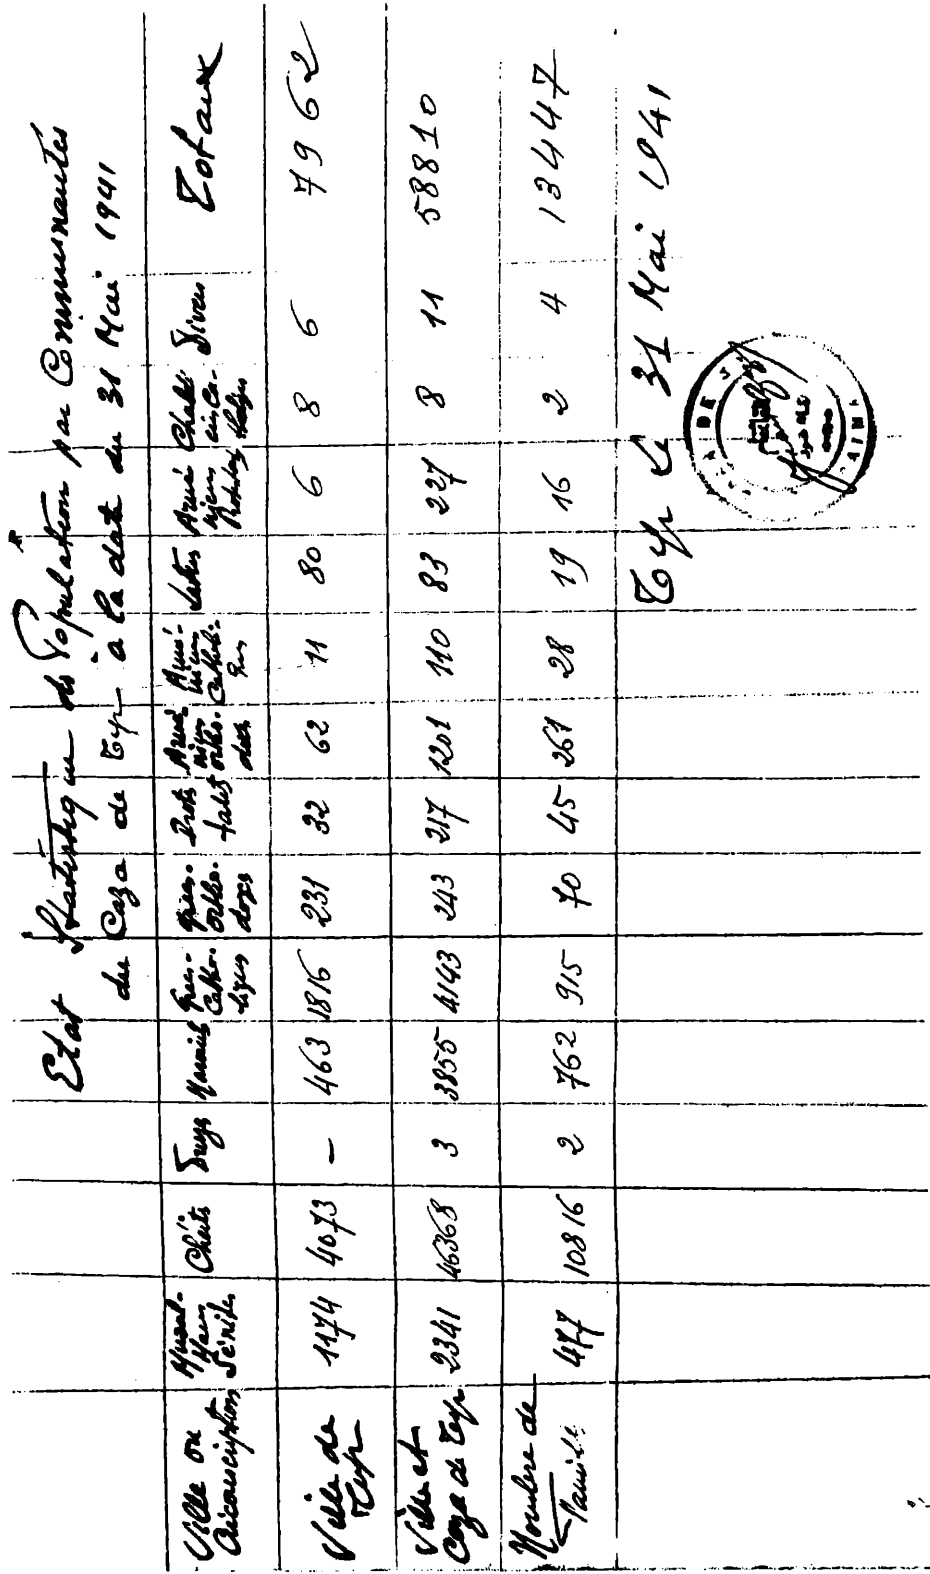 Etat Statistique de Population par Communautés
du Caza de Tyr à la date du 31 Mai 1941
Ville ou Circonscription | Musulmans Sénites | Chiites | Druzes | Maronites | Grecs-Catholiques | Grecs-Orthodoxes | Protestants | Arméniens Orthodoxes | Arméniens Catholiques | Latins | Arméniens Protestants | Chaldéens Catholiques | Divers | Totaux
Ville de Tyr | 1174 | 4073 | — | 463 | 1816 | 231 | 32 | 62 | 11 | 80 | 6 | 8 | 6 | 7962
Ville et Caza de Tyr | 2341 | 46368 | 3 | 3855 | 4143 | 243 | 217 | 1201 | 110 | 83 | 227 | 8 | 11 | 58810
Nombre de Famille | 477 | 10816 | 2 | 762 | 915 | 70 | 45 | 267 | 28 | 19 | 16 | 2 | 4 | 13447
Tyr le 31 Mai 1941